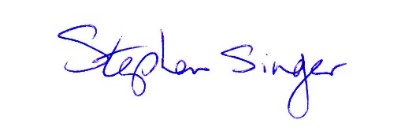 Stephen Singer